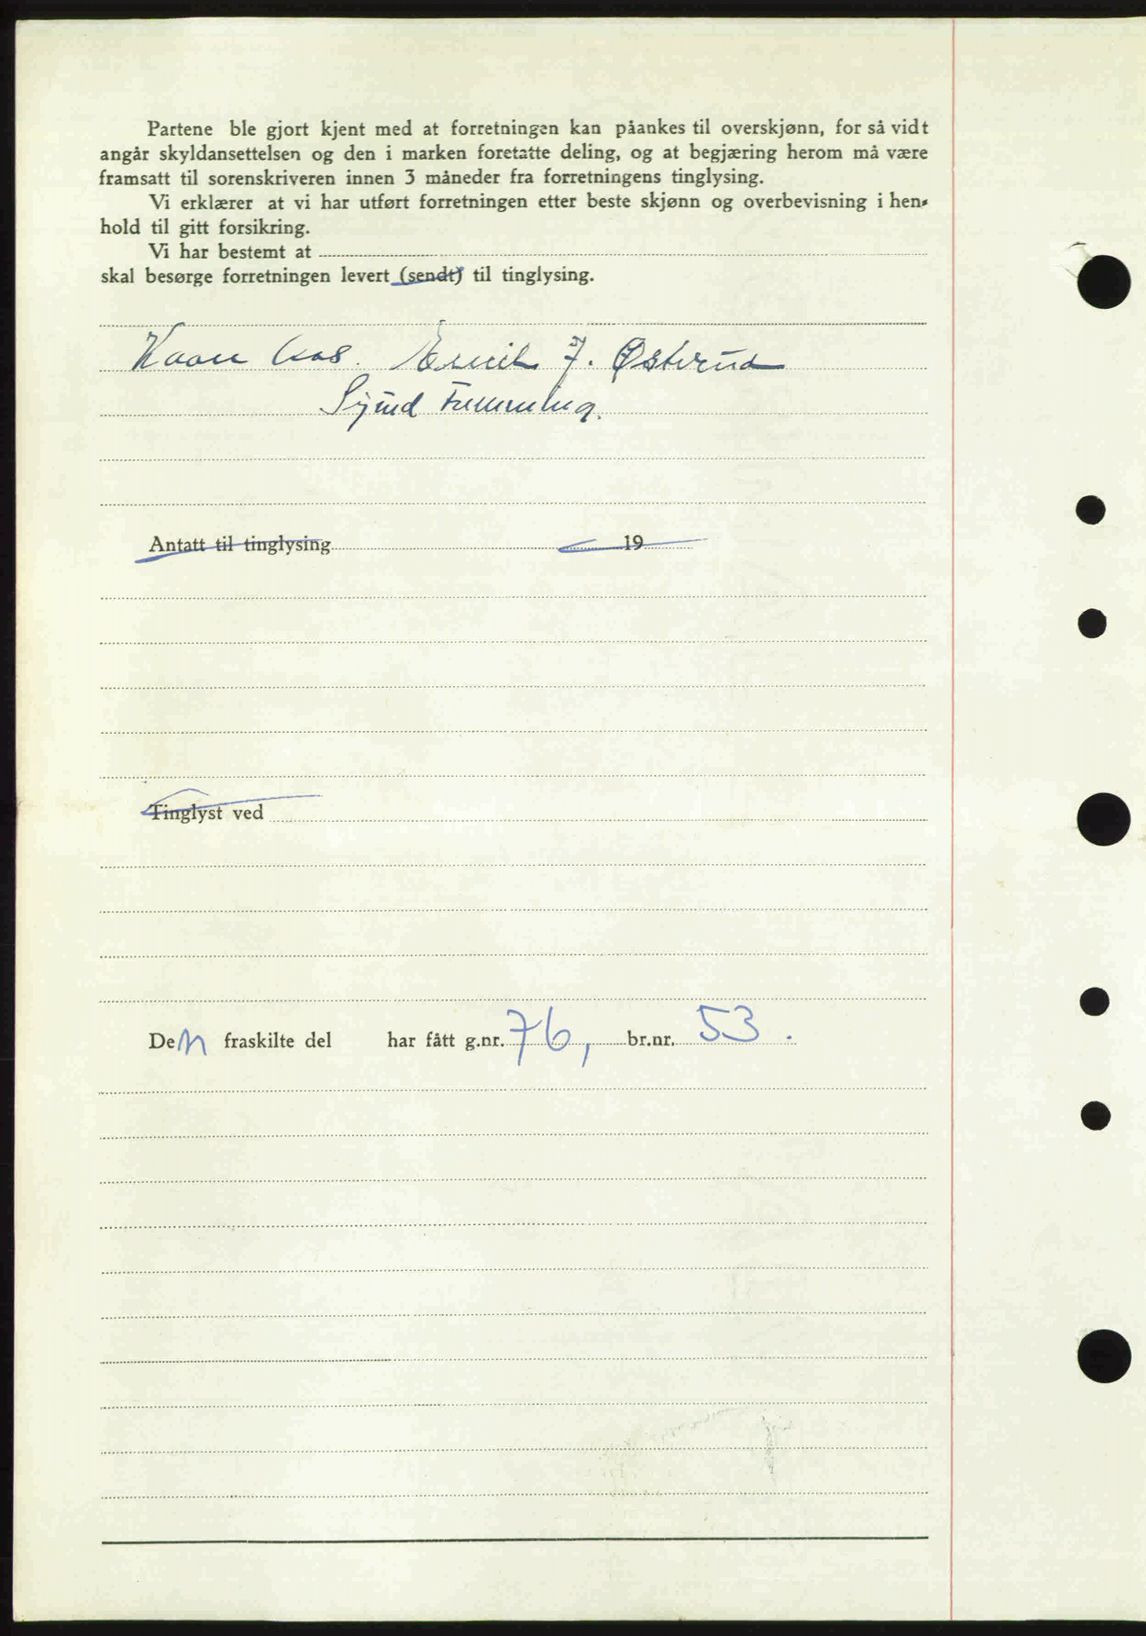 Partene ble gjort kjent med at forretningen kan påankes til overskjønn, for så vidt
angår skyldansettelsen og den i marken foretatte deling, og at begjæring herom må være
framsatt til sorenskriveren innen 3 måneder fra forretningens tinglysing.
Vi erklærer at vi har utført forretningen etter beste skjønn og overbevisning i hen-
hold til gitt forsikring.
Vi har bestemt at
skal besørge forretningen levert (sendt) til tinglysing.
Haaen Aas. Emil J. Østerud
Sjønd
Antatt til tinglysing 19
Tinglyst ved
Den fraskilte del har fått g.nr. 76, br.nr. 53.